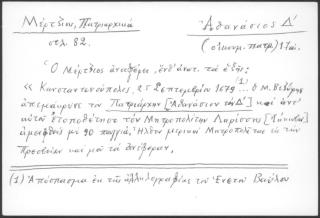 Μέρτζιου, Πατριαρχικά
Ἀθανάσιος Δ'
σελ. 82.
(οἰκουμ. πατρ.)
Ὁ Μέρτζιος ἀναφέρει, ἐνθ' ἀνωτ. τὰ ἑξῆς:
« Κωνσταντινούπολις, 25 Σεπτεμβρίου 1679 ... ὁ Μ. Βεζύρης (1)
ἀπεμάκρυνε τὸν Πατριάρχην [Ἀθανάσιον τὸν Δ'] καὶ ἀντ'
αὐτοῦ ἐτοποθέτησε τὸν Μητροπολίτην Λαρίσσης [Ἰάκωβον]
ἀμειφθεὶς μὲ 90 πουγγιά. Ἦλθον μερικοὶ Μητροπολῖται εἰς τὴν
Πρεσβείαν καὶ μοῦ τὸ ἀνέφεραν.
(1) Ἀπόσπασμα ἐκ τῆς ἀλληλογραφίας τοῦ Ἐνετοῦ Βαΐλου